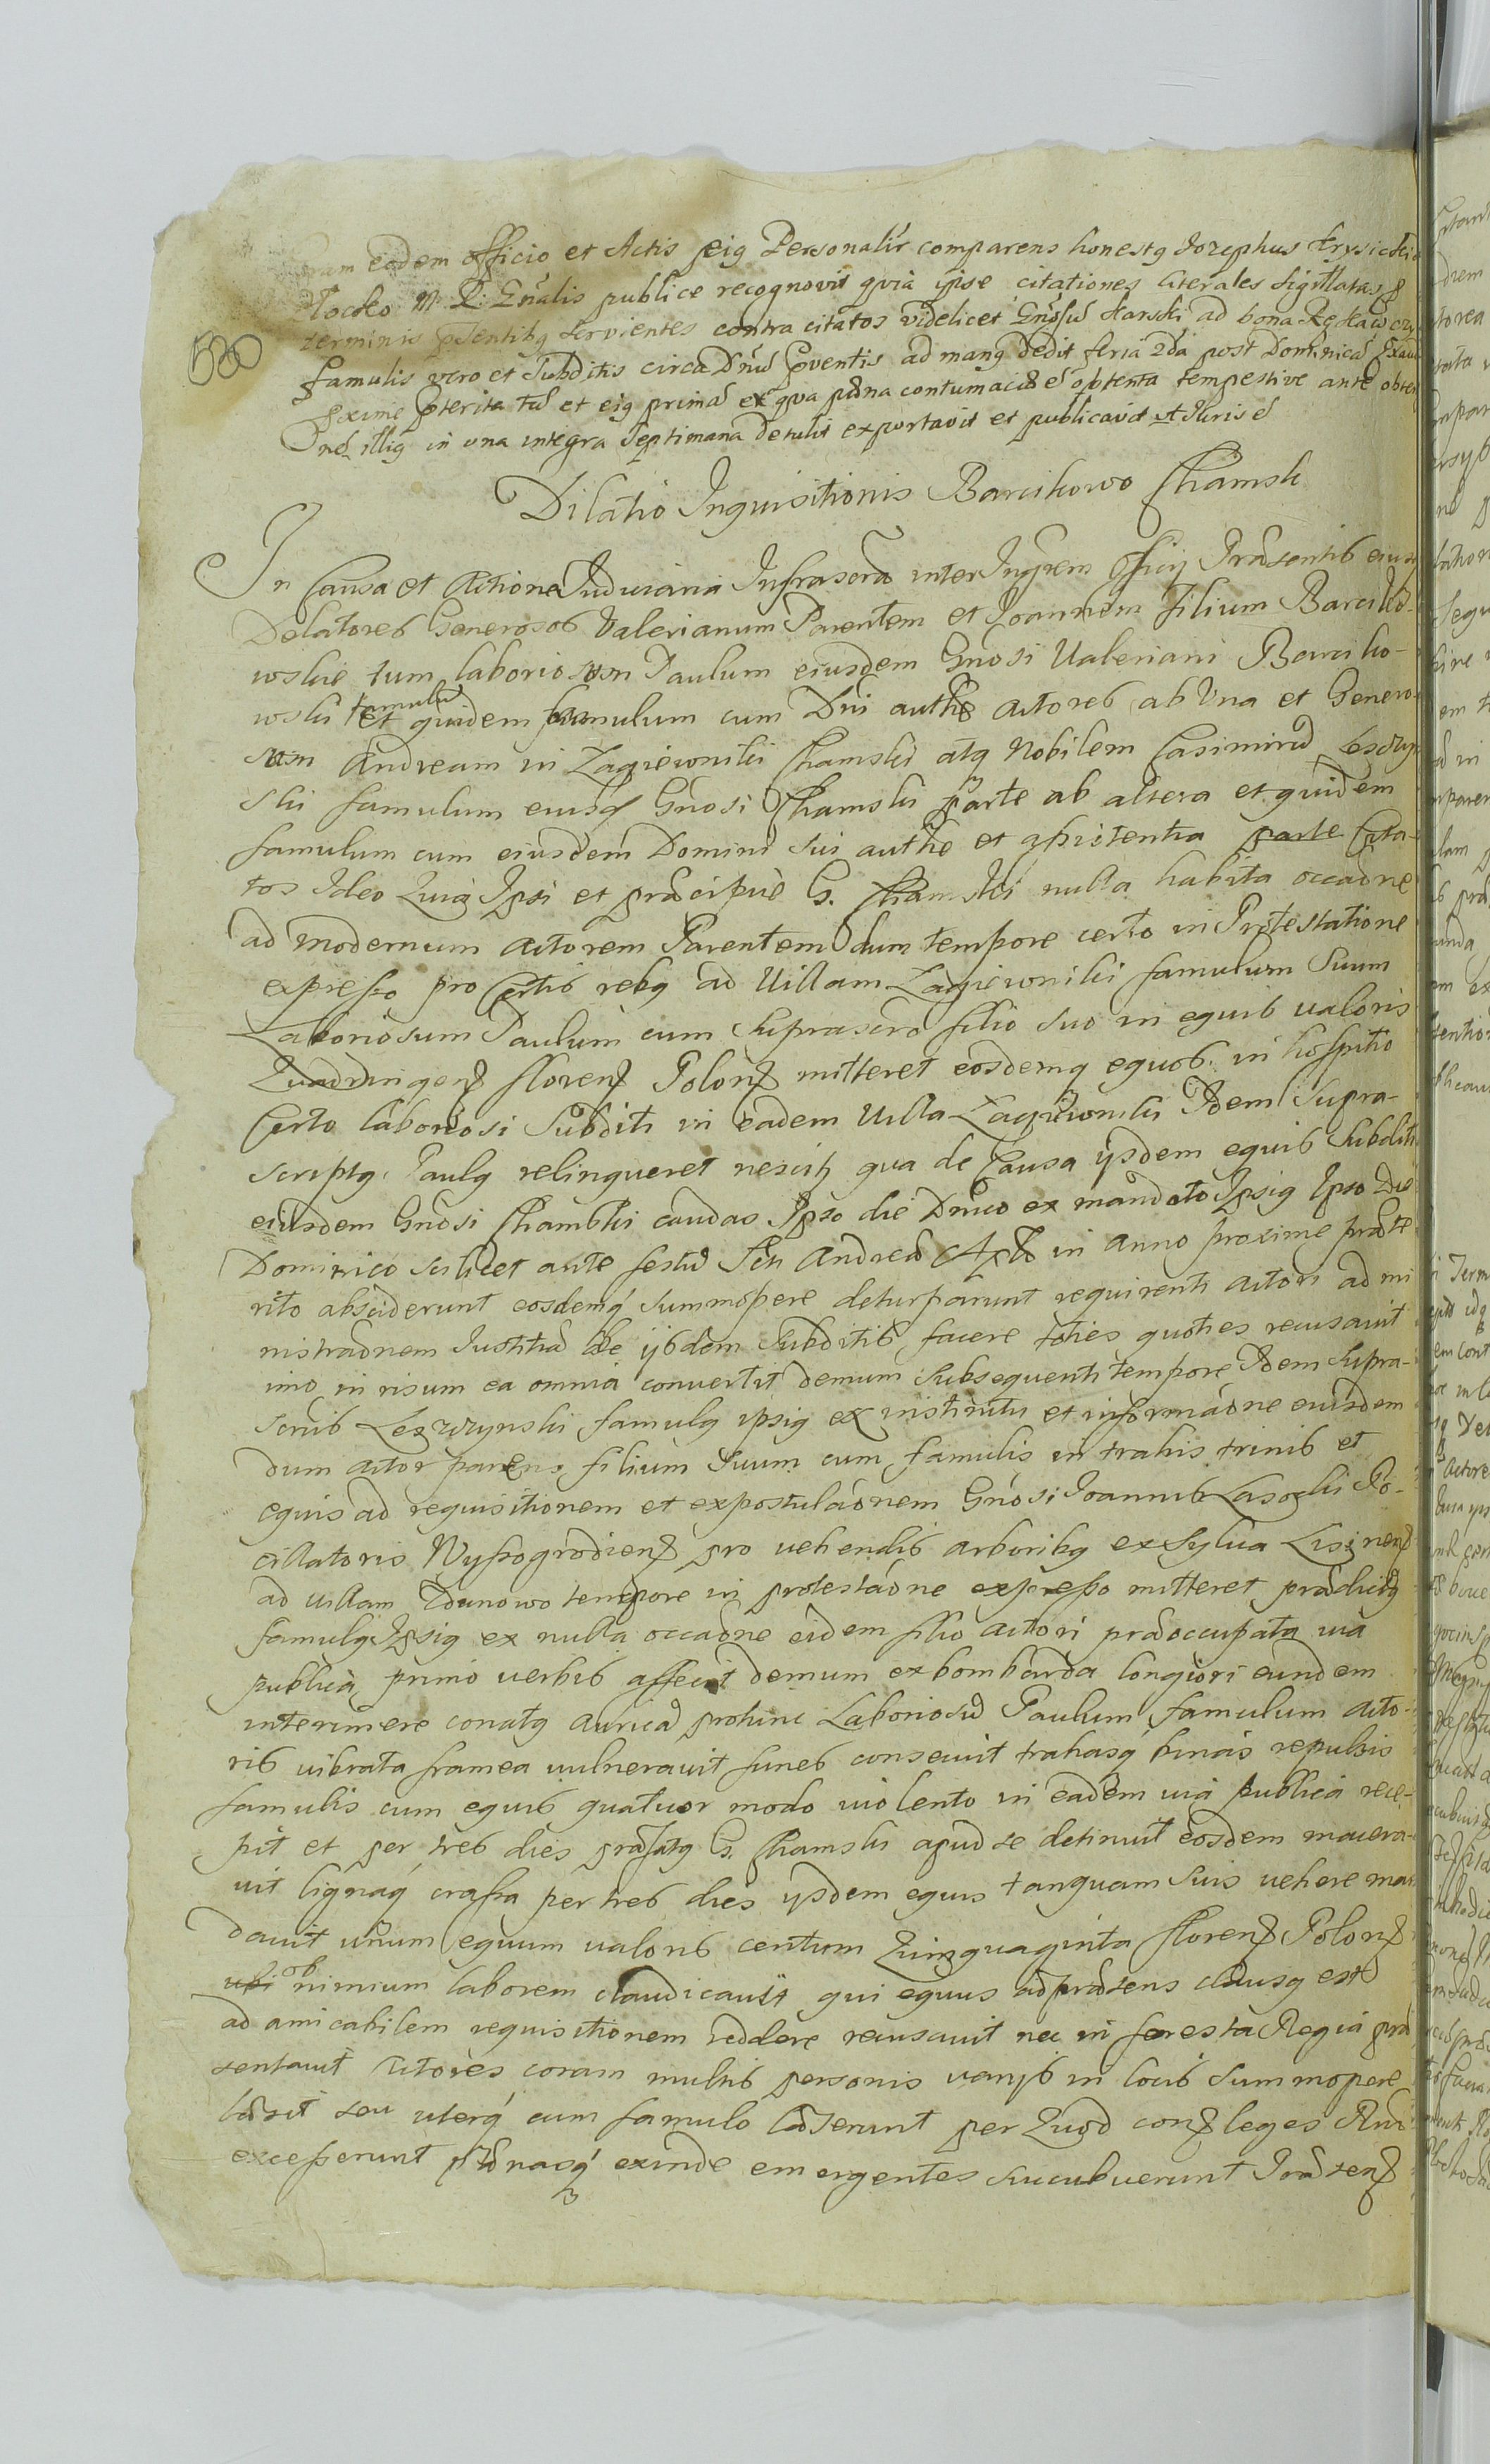 eodem officio et Actis eig Personalir comparens honestg Jozephus
Plocko M R: Gnalis publice recognovit qvia ipse citationes literales sigillatas
terminis pntibg servientes contra citatos videlicet Gnosu Karski ad bona
famulis vero et Subditis circa Dnu foventis ad mang dedit feria 2da post Dominica Exau
pxime pterita et eig prima ex qva pæna contumaciæ e optenta tempestive ante
illig in una integra septimana detulit exportavit et publicavit ut Juris e
530
Dilatio Inquisitionis Barcikowo Chamsk
In Causa et Actione Judiciaria Infrascra inter Officij Præsentis eius
Delatores Generosos Valerianum Parentem et Joannem Filium Barciko-
wskie tum laboriosum Paulum eiusdem Gnosi Valeriani Barciko-
wski famulu et quidem famulum cum Dni authe actores ab Una et Genero-
sum Andream in Zagiewniki Chamski atq Nobilem Casimiru Leszczyn
ski famulum eiusd Gnosi Chamski parte ab altera et quidem
famulum cum eiusdem Domini sui authe et assistentia parte Cita-
tos Ideo Quia Ipsi et præcipue G. Chamski nulla habita occaone
ad modernum actorem Parentem dum tempore certo in Protestatione
expresso pro certis rebg ad Villam Zagiewniki famulum Suum
Laboriosum Paulum cum suprascro filio suo in equis valoris
Quadringen floren Polon mitteret eosdemq equos in hospitio
Certo laboriosi Subditi in eadem Villa Zagiewniki Idem Supra-
scriptg Paulg relinqueret nescit qua de Causa ijsdem equis Subditi
eiusdem Gnosi Chamski caudas Ipso die Dnico ex mandato Ipsig Ipso Die
Dominico scilicet ante festu Sti Andreæ Apli in anno proxime præte
rito absciderunt eosdemq summopere deturparunt requirenti actori ad mi
nistraonem Justitiæ de ijsdem Subditis facere toties quoties recusavit
imo in risum ea omnia convertit demum Subsequenti tempore Idem Supra-
scrius Leszczynski famulg ipsig ex instinctu et informaone eiusdem
dum actor parens filium Suum cum famulis in trahis trinis et
equis ad requisitionem et expostulaonem Gnosi Joannis Lasocki Po-
cillatoris Wyssogrodien pro vehendis arboribg ex Sylva
ad villam Zdunowo tempore in protestaone expresso mitteret prædictg
famulg Ipsig ex nulla occaone eidem filio actori præoccupata via
publica primo verbis affecit demum ex bombarda longiori eundem
interimere conatg protunc Laboriosu Paulum famulum acto-
ris vibrata framea vulneravit funes consecuit trahasq binas repulsis
famulis cum equis quatuor modo violento in eadem via publica rece-
pit et per tres dies præfatg G. Chamski apud se detinuit eosdem macera-
vit lignaq crassa per tres dies ijsdem equis tanquam suis vehere man
davit unum equum valoris centum Quinquaginta floren Polon
ubi ob nimium laborem claudicavit qui equus ad præsens est
ad amicabilem requisitionem reddere recusavit nec in foresta Regia præ
sentavit Actores coram multis personis varijs in locis summopere
læsit seu uterq cum famulo læserunt per Quod con leges
excesserunt pænasq exinde emergentes succubuerunt